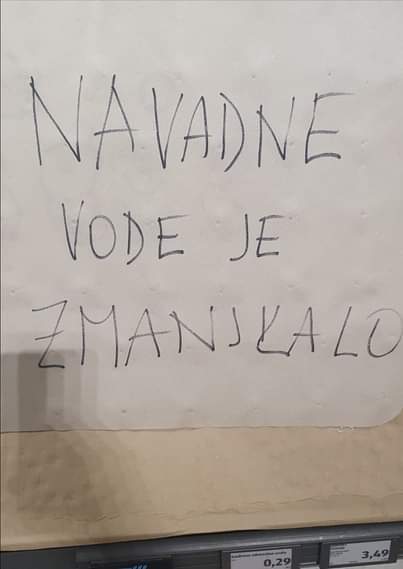 NAVADNE
VODE JE
ZMANJKALO
0,29
3,49